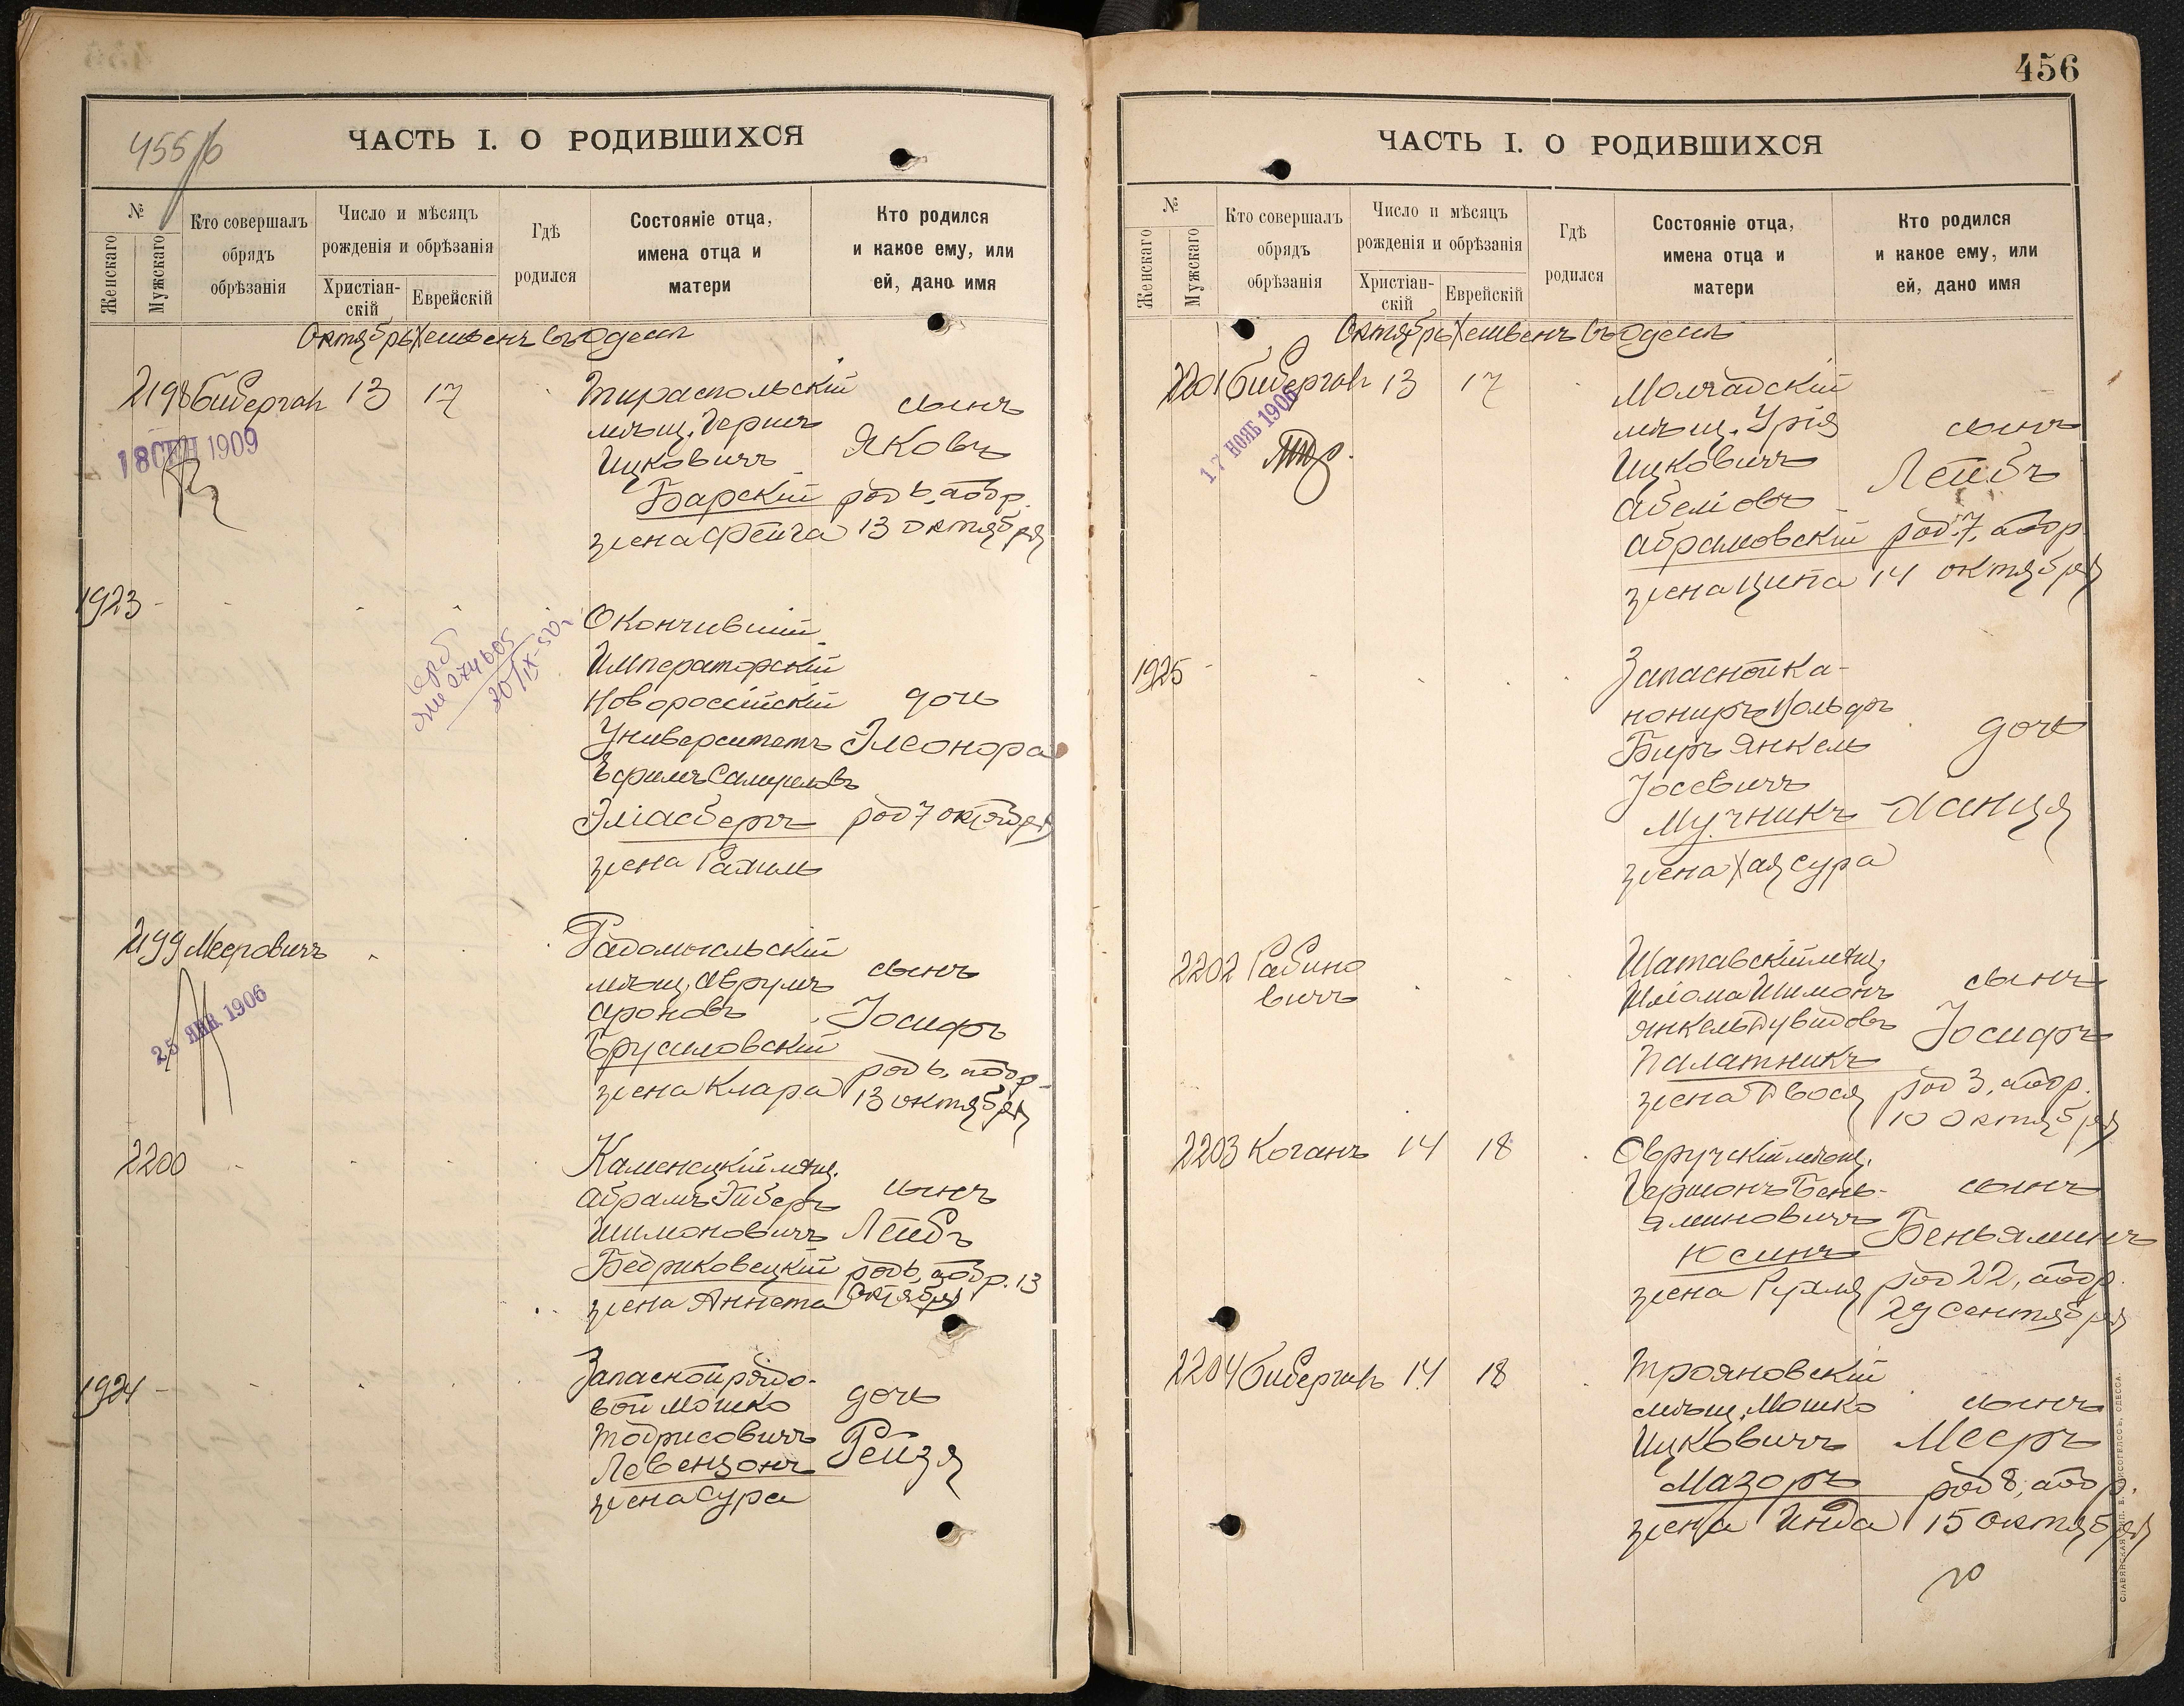 455/б
ЧАСТЬ I. О РОДИВШИХСЯ
№
Женскаго
Мужскаго
Кто совершалъ
обрядъ
обрѣзанія
Число и мѣсяцъ
рожденія и обрѣзанія
Христіан-
скій
Еврейскій
Гдѣ
родился
Состояніе отца,
имена отца и
матери
Кто родился
и какое ему, или
ей, дано имя
Октябрь Хешвенъ въ Одессѣ
2198 Бибергалъ 13 17
Тираспольскій
мѣщ. Гершъ
Ицковичъ
Барскій
жена Фейга
сынъ
Яковъ
род 6, а обр.
13 октября
18 СЕН 1909
1923
Окончившій
Императорскій
Новороссійскій
Университетъ
Ефимъ Самуиловъ
Эліасбергъ
жена Рахиль
дочь
Элеонора
род 7 октября
2199 Мееровичъ
Радомысльскій
мѣщ. Аврумъ
Ароновъ
Брусиловскій
жена Клара
сынъ
Іосифъ
род 6, а обр.
13 октября
25 ЯНВ 1906
2200
Каменецкій мѣщ.
Абрамъ Гиберъ
Шимоновичъ
Бедриковецкій
жена Аннета
сынъ
Лейбъ
род 6, а обр. 13
октября
1924
Запасной рядо-
вой Мошко
Тодрисовичъ
Левензонъ
жена Сура
дочь
Рейзя
456
ЧАСТЬ I. О РОДИВШИХСЯ
№
Женскаго
Мужскаго
Кто совершалъ
обрядъ
обрѣзанія
Число и мѣсяцъ
рожденія и обрѣзанія
Христіан-
скій
Еврейскій
Гдѣ
родился
Состояніе отца,
имена отца и
матери
Кто родился
и какое ему, или
ей, дано имя
Октябрь Хешвенъ въ Одессѣ
2201 Бибергалъ 13 17
Молчадскій
мѣщ. Урія
Ицковичъ
Абеліовъ
Абрамовскій
жена Ципа
сынъ
Лейбъ
род. 7, а обр
14 октября
17 НОЯБ 1906
1925
Запасной ка-
ниръ Вольфъ
Биръ Янкель
Іосевичъ
Мучникъ
жена Хая Сура
дочь
Ханця
2202 Рабино
вичъ
Шатавскій мѣщ.
Шліома Шимонъ
Янкель Дувидовъ
Палатникъ
жена Двося
сынъ
Іосифъ
род 3, а обр.
10 октября
2203 Коганъ 14 18
Овручскій мѣщ.
Гершонъ Бень-
яминовичъ
Юсинъ
жена Рухля
сынъ
Беньяминъ
род 22, а обр.
29 сентября
2204 Бибергалъ 14 18
Трояновскій
мѣщ. Мошко
Ицковичъ
Мазоръ
жена Инда
сынъ
Мееръ
род 8, а обр.
15 октября